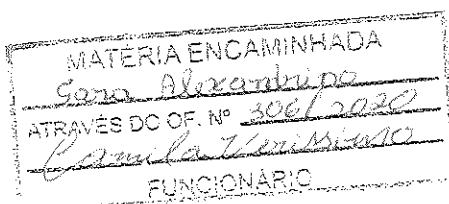 MATÉRIA ENCAMINHADA
Sara Alexandripo
ATRAVÉS DO OF. Nº 306/2020
Camila Verissimo
FUNCIONÁRIO